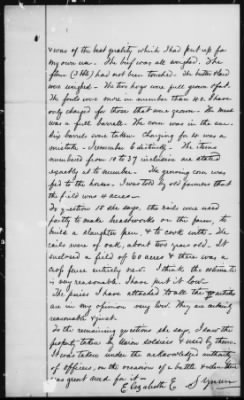 & was of the best quality which I had put up for
my own use. The beef was all weighed. The
flour (3 bbl) had not been touched. The butter & lard
were weighed - The two hogs were full grown & fat.
The fowls were more in number than 40. I have
only charged for those that were grown. The meal
was a full barrell. The corn was in the ear.
his barrels were taken. Charging for 10 was a
mistake - I remember 6 distinctly - The items
numbered from 10 to 37 inclusive are stated
exactly as to number - The growing corn was
fed to the horses. I was told by old farmers that
the field was 4 acres -
To question 18 she says, the rails were used
partly to make breastworks on the farm, to
build a slaughter pen, & to cook with. The
rails were of oak, about two years old. It
enclosed a field of 60 acres & there was a
crop fence entirely new. I think the estimate
is very reasonable. I have put it low -
The prices I have attached to all the articles
are in my opinion very low. They are entirely
reasonable & just.
To the remaining questions she says, I saw the
property taken by Union soldiers & used by them.
It was taken under the acknowledged authority
of officers, on the occasion of a battle & when there
was great need for it -
Elizabeth E